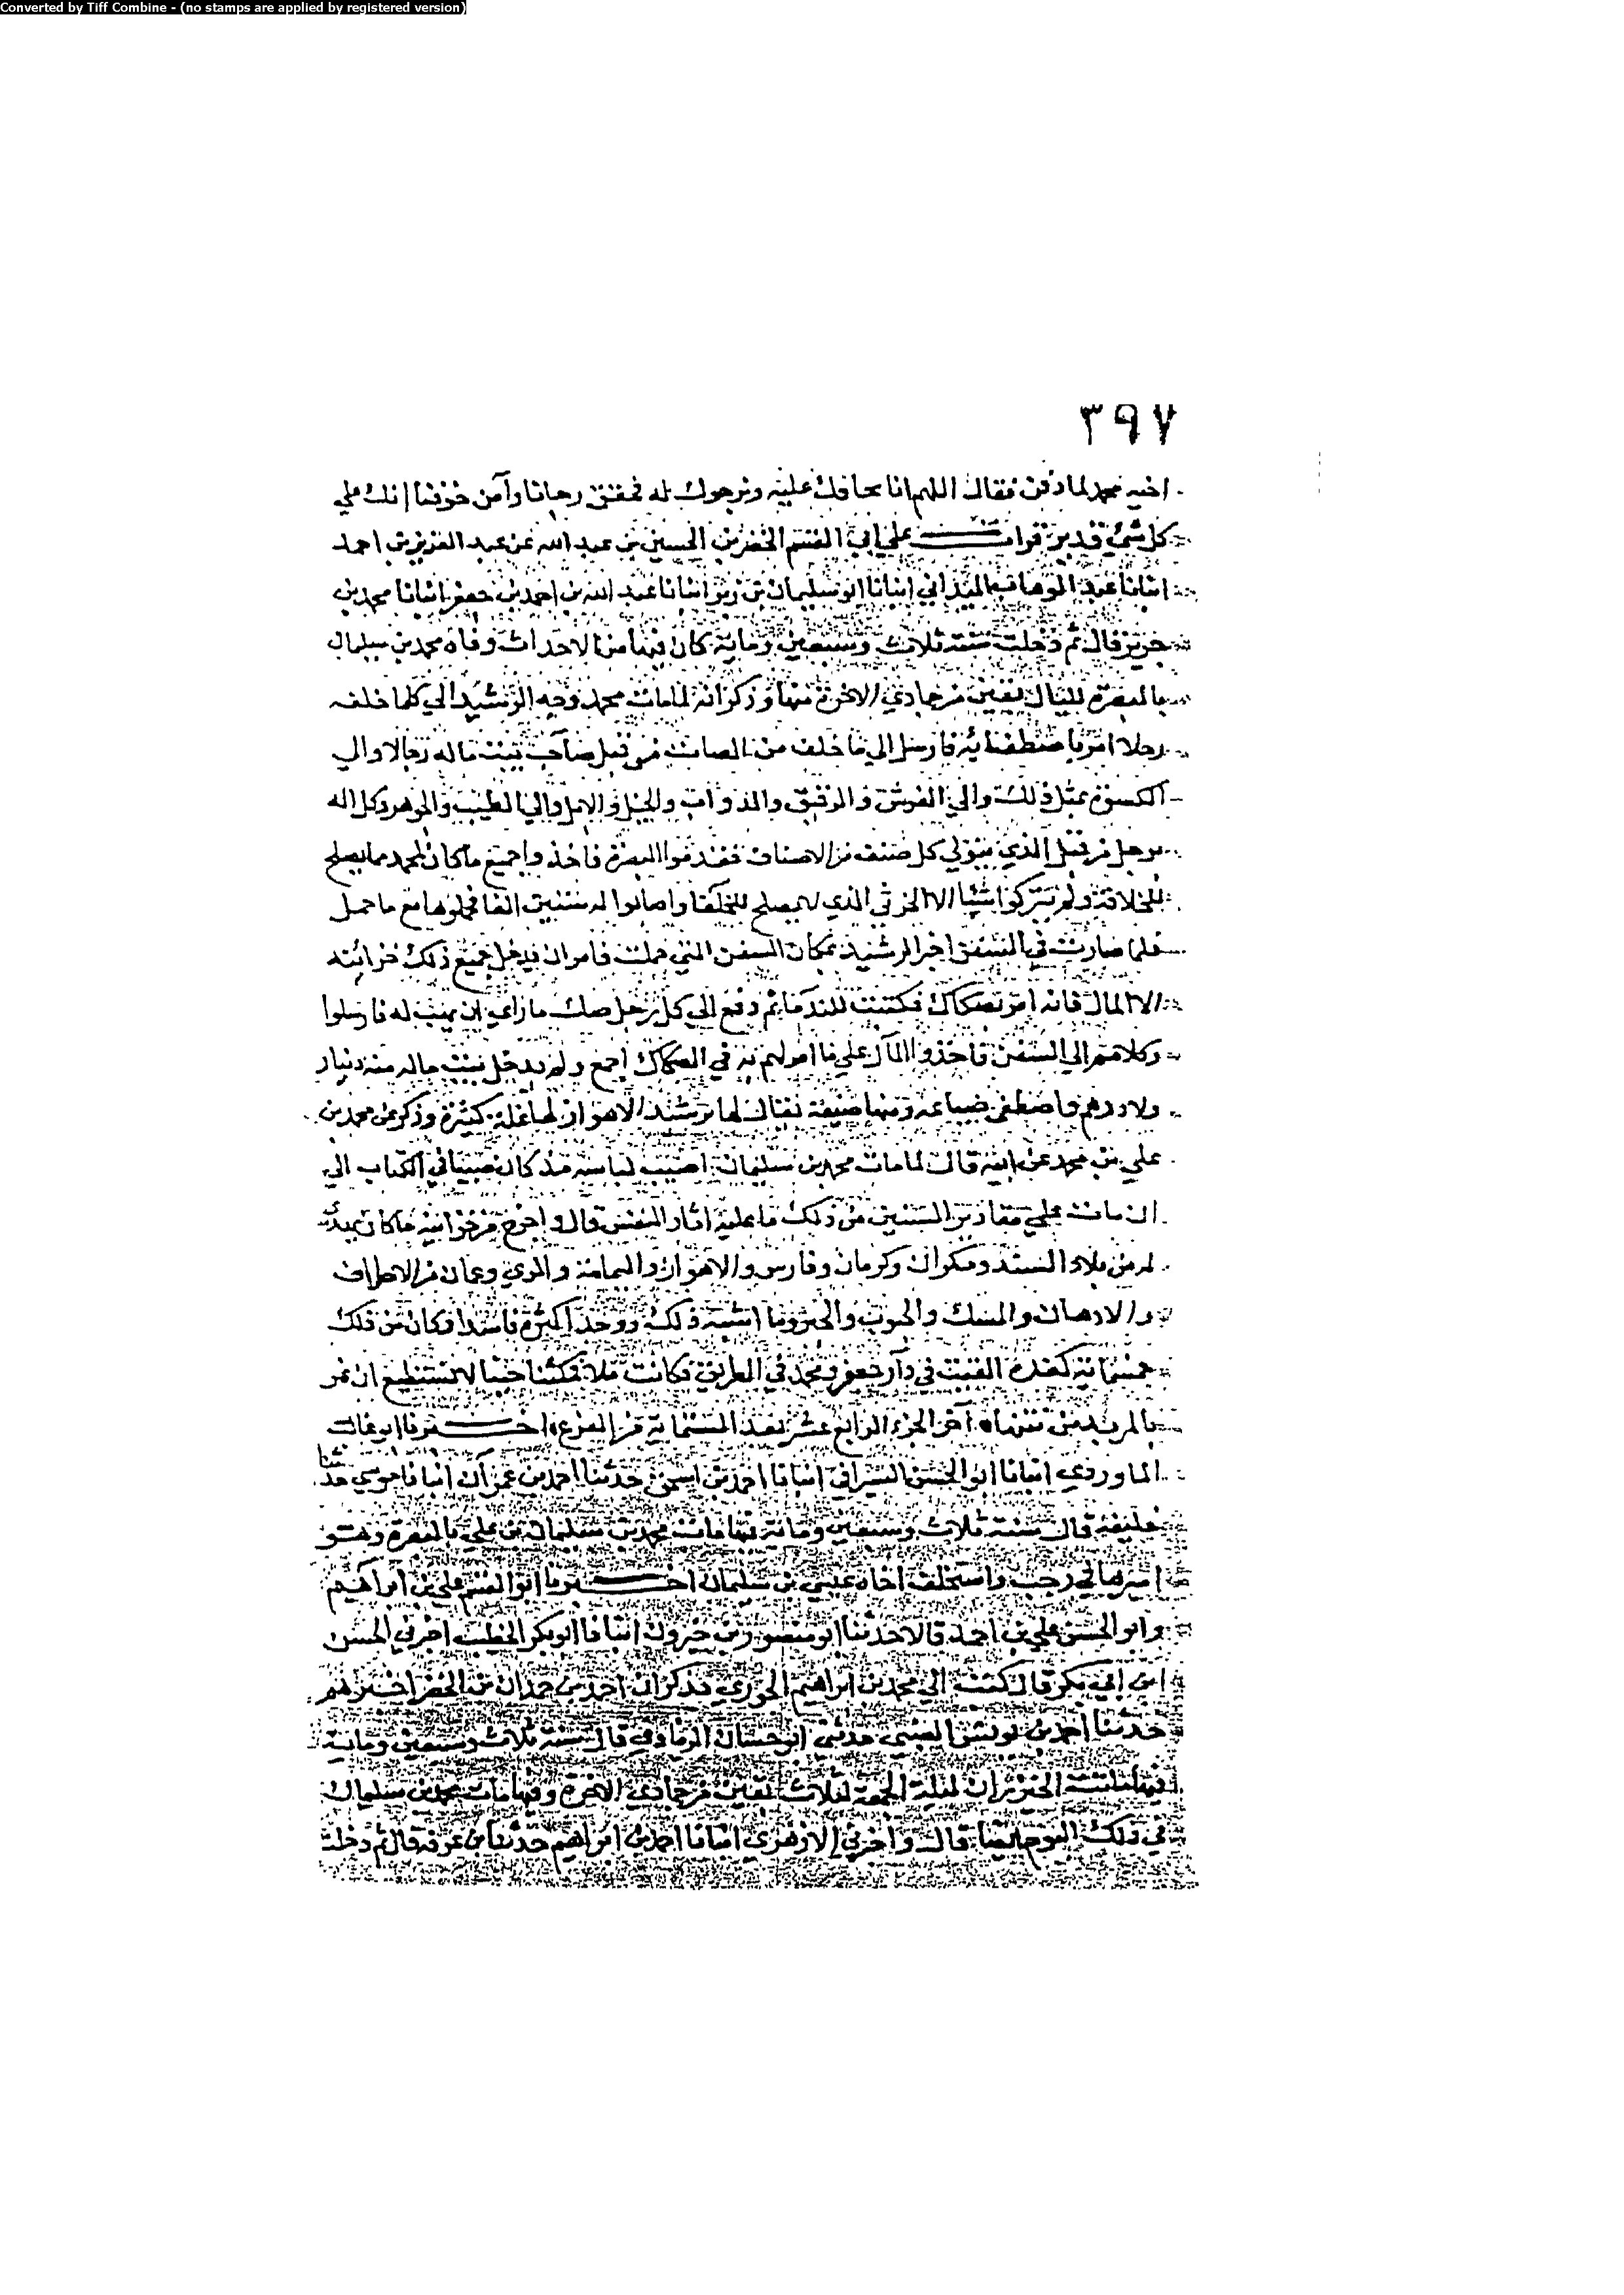 Converted by Tiff Combine - (no stamps are applied by registered version)
٣٩٧
اخيه محمد لما دفن فقال اللهم انا نخافك عليه ونرجوك له فحقق رجانا وآمن خوفنا انك علي
كل شيء قدير قرات علي ابي القسم الخضر بن الحسين بن عبد الله عن عبد العزيز بن احمد
انبانا عبد الوهاب الميداني انبانا ابو سليمان بن زبر انبانا عبد الله بن احمد بن جعفر انبانا محمد بن
جرير قال ثم دخلت سنة ثلاث وسبعين وماية كان فيها من الاحداث وفاة محمد بن سليمان
بالبصرة لليال بقين من جمادي الاخرة منها وذكر انه لما مات محمد وجه الرشيد الي كلما خلفه
رجلا امره باصطفائه فارسل الي ما خلف من الصامت من قبل صاحب بيت ماله رجالا والي
الكسوة بمثل ذلك والي الفرش والرقيق والدواب والخيل والابل والي الطيب والجوهر وكل اله
برجل من قبل الذي يتولي كل صنف من الاصناف فقدموا البصرة فاخذوا جميع ما كان لمحمد مما يصلح
للخلافة ولم يتركوا شيئا الا الخرثي الذي لا يصلح للخلفا واصابوا له ستين الفا فحملوها مع ما حمل
فلما صارت في السفن اخبر الرشيد بمكان السفن التي حملت فامر ان يدخل جميع ذلك خزائنه
الا المال فانه امر بصكاك فكتبت للندما ثم دفع الي كل رجل صك ما راي ان يهب له فارسلوا
وكلاهم الي السفن فاخذوا المال علي ما امر لهم به في الصكاك اجمع ولم يدخل بيت ماله منه دينار
ولا درهم واصطفي ضياعه ومنها ضيعة يقال لها برشيد الاهواز لها غلة كثيرة وذكر عن محمد بن
علي بن محمد عن ابيه قال لما مات محمد بن سليمان اصيب لباسه مذ كان صبيا في الكتاب الي
ان مات علي مقادير السنين من ذلك ما عليه اثار النقس قال واخرج من خزانته ما كان يهدي
له من بلاد السند ومكران وكرمان وفارس والاهواز واليمامة والري وعمان من الالطاف
والادهان والسمك والحبوب والجبن وما اشبه ذلك ووجد اكثره فاسدا فكان من ذلك
خمسماية كنعدة القيت في دار جعفر ومحمد في الطريق فكانت بلا فمكثنا حينا لا نستطيع ان نمر
بالمربد من نتنها آخر الجزء الرابع عشر بعد الستماية من الفرع اخبرنا ابو غالب
الماوردي انبانا ابو الحسن السيرافي انبانا احمد بن اسحق حدثنا احمد بن عمران انبانا موسي حدثنا
خليفة قال سنة ثلاث وسبعين وماية فيها مات محمد بن سليمان بن علي بالبصرة وهو
اميرها في رجب واستخلف اخاه عيسي بن سليمان اخبرنا ابو القسم علي بن ابراهيم
وابو الحسن علي بن احمد قالا حدثنا ابو منصور بن خيرون انبانا ابو بكر الخطيب اخبرني الحسن
ابن ابي بكر قال كتب الي محمد بن ابراهيم الجوري يذكر ان احمد بن حمدان بن الخضر اخبرهم
حدثنا احمد بن يونس الضبي حدثني ابو حسان الزيادي قال سنة ثلاث وسبعين وماية
فيها ماتت الخيزران ليلة الجمعة لثلاث بقين من جمادي الاخرة وفيها مات محمد بن سليمان
في ذلك اليوم ايضا قال واخبرني الازهري انبانا احمد بن ابراهيم حدثنا بن عرفة قال ثم دخلت